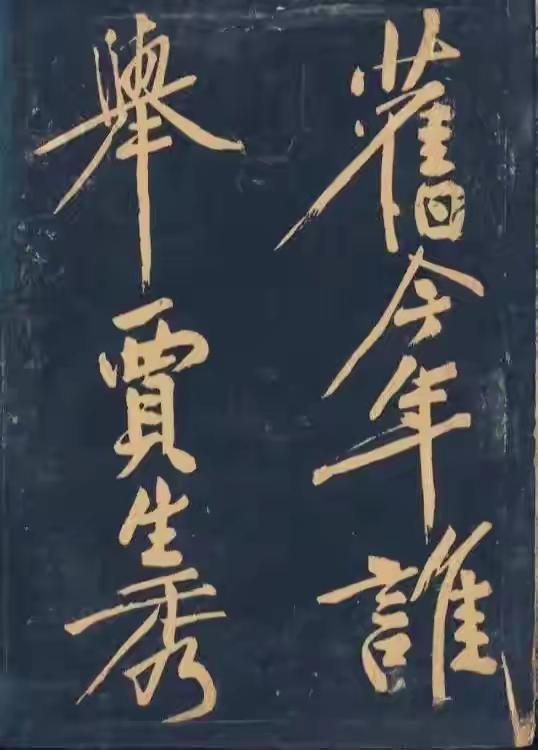 舊今年誰
舉賈生秀